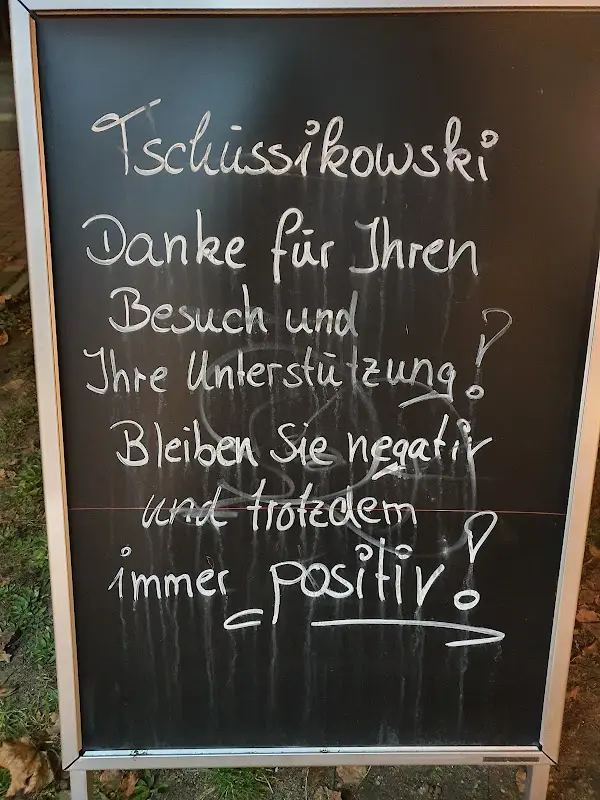 Tschüssikowski
Danke für Ihren
Besuch und
Ihre Unterstützung!
Bleiben Sie negativ
und trotzdem
immer positiv!